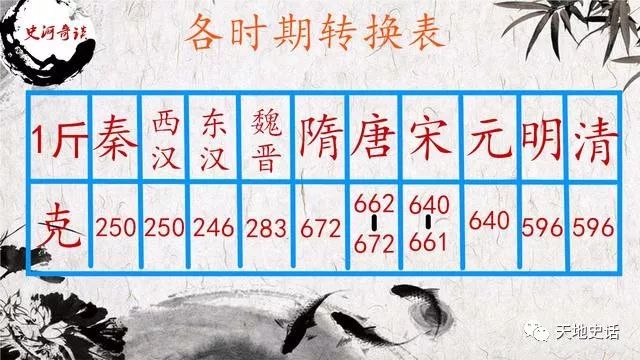 史河奇谈
各时期转换表
1斤 秦 西汉 东汉 魏晋 隋 唐 宋 元 明 清
克 250 250 246 283 672 662-672 640-661 640 596 596
天地史话